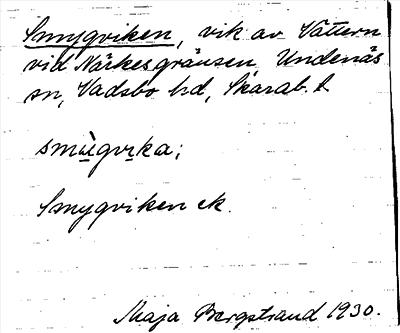 Smygviken, vik av Vättern
vid Närkesgränsen Undenäs
sn, Vadsbo hd, Skarab. l
smùgvɩka;
Smygviken ek.
Maja Bergstrand 1930.